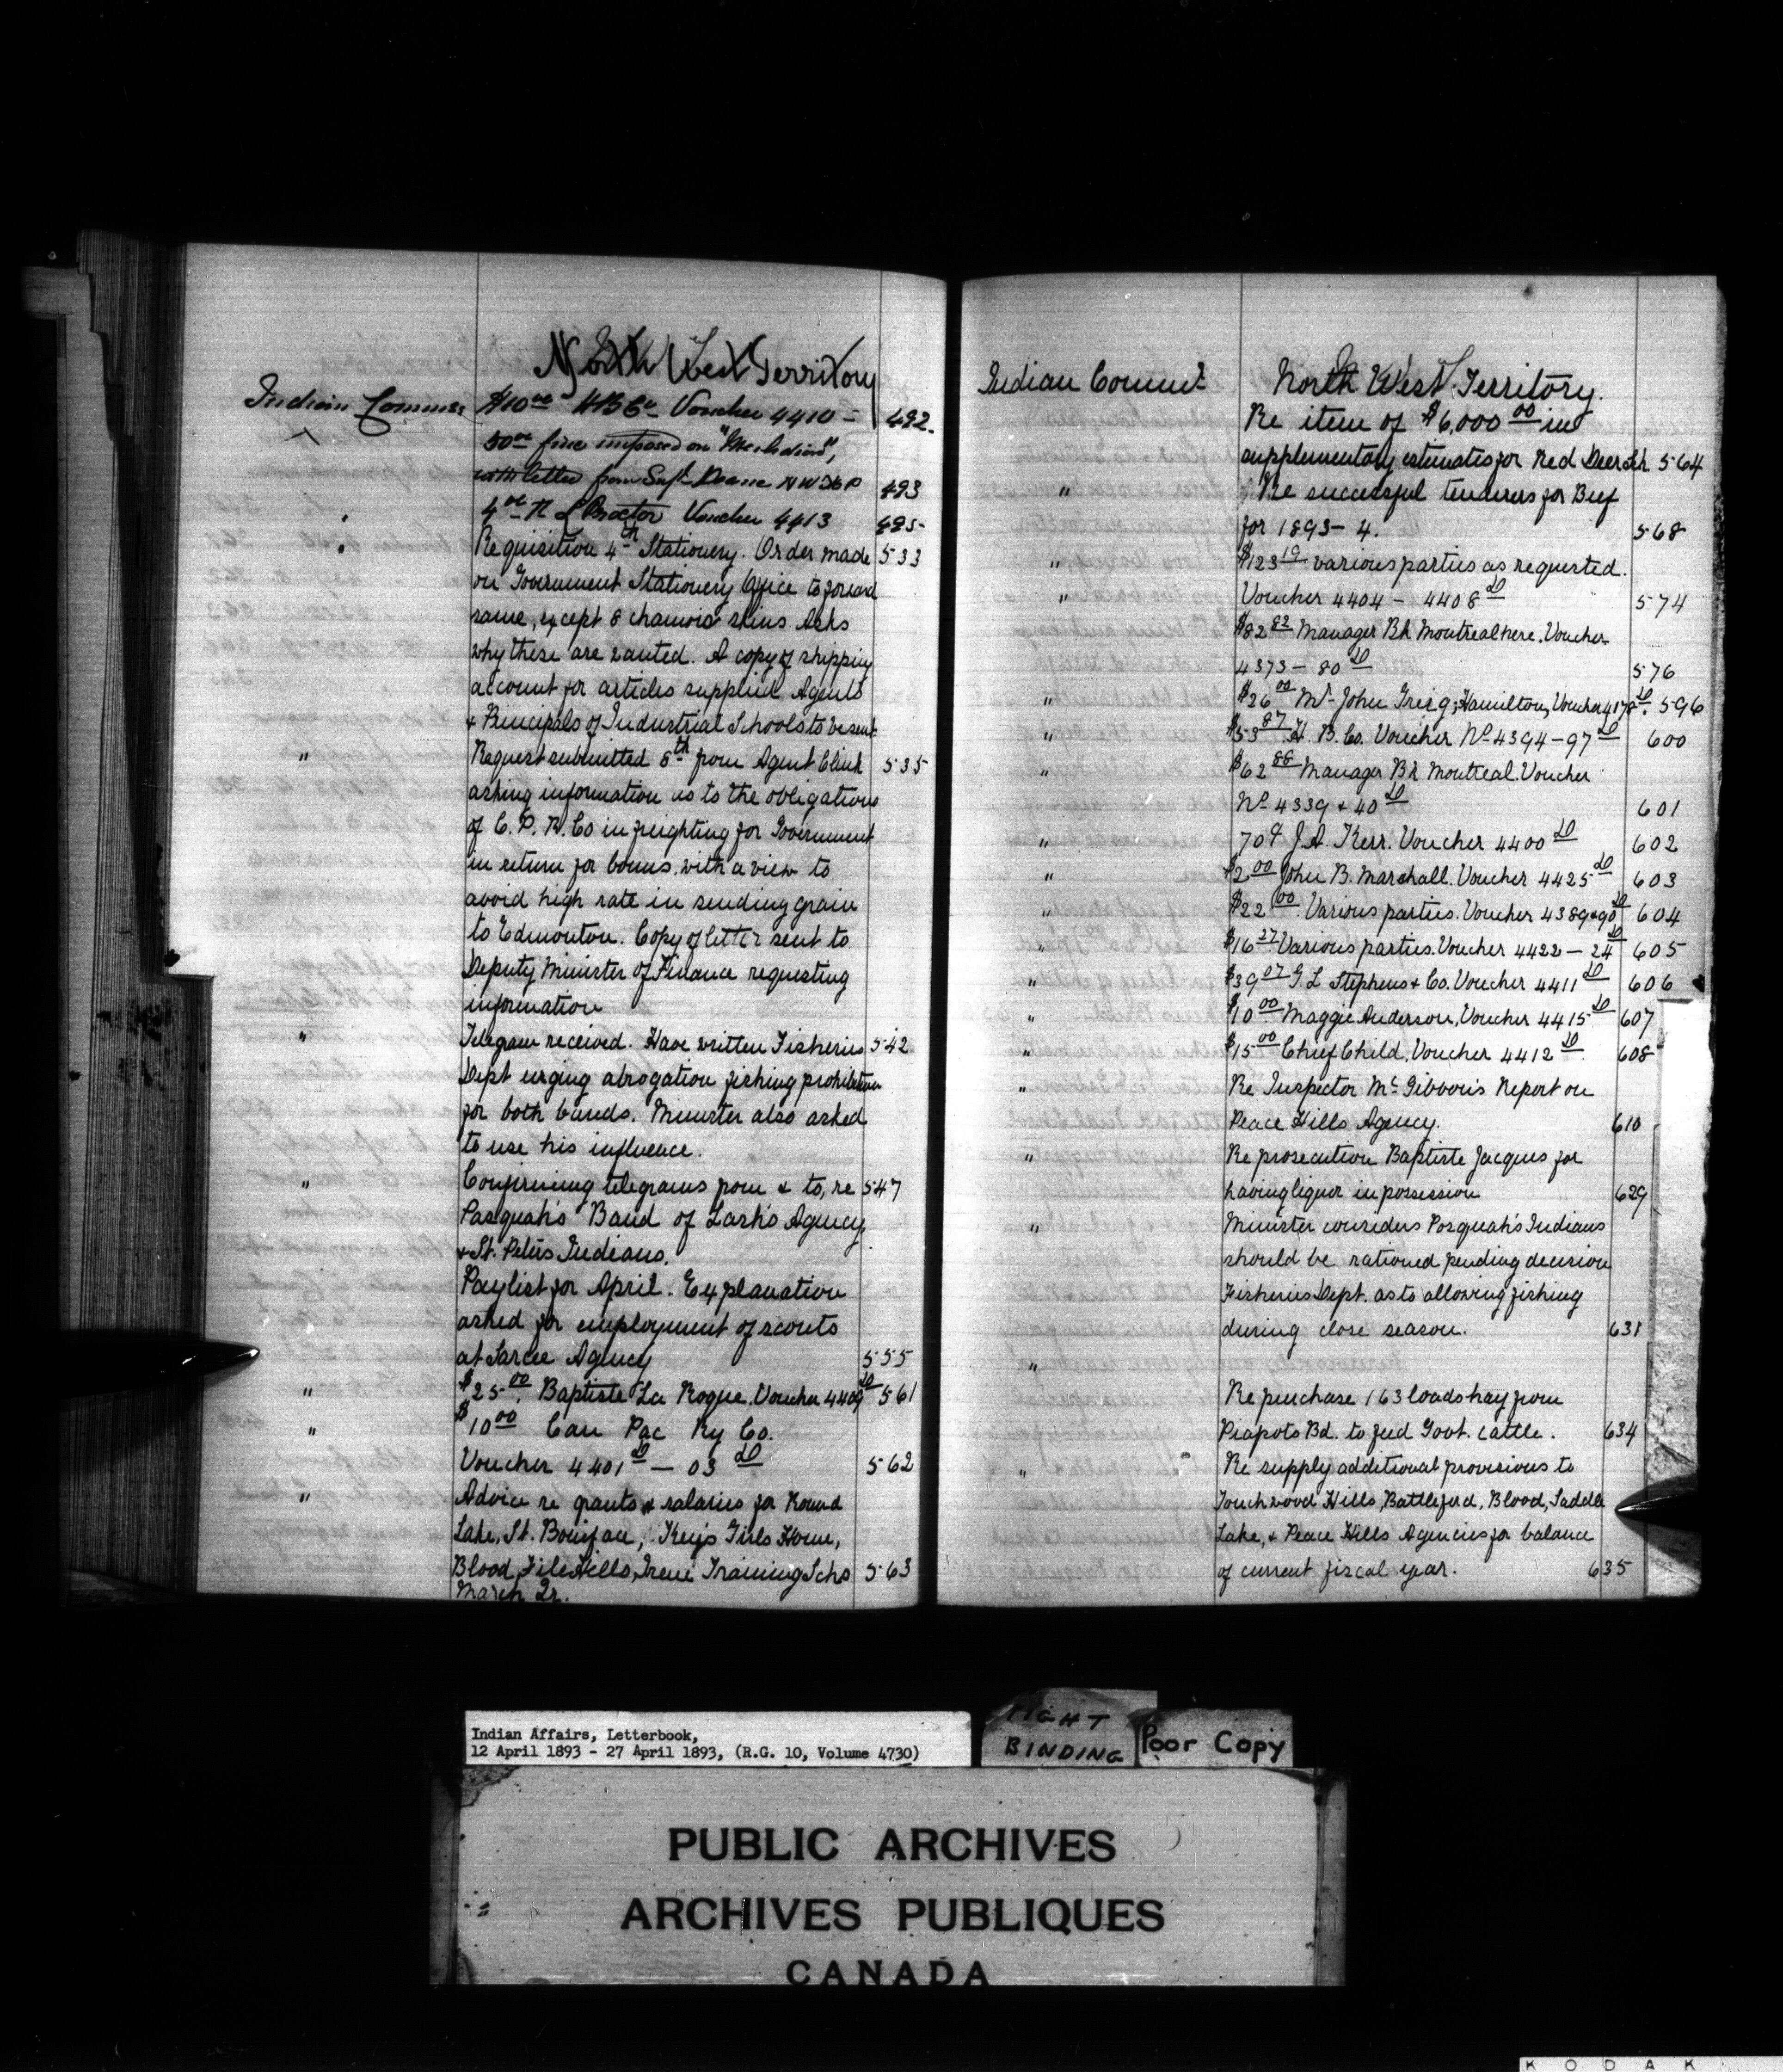 North West Territory
Indian Commr $10.00 HBCo Voucher 4410 - 492.
50.00 fine imposed on
with letter from Supt Deane NWMP 493
4.00 R L Proctor Voucher 4413 495
Requisition 4th Stationery. Order made 533
on Government Stationery Office to forward
same, except 8 chamois skins. Asks
why these are wanted. A copy of shipping
account for articles supplied Agents
& Principals of Industrial Schools to be sent.
" Request submitted 8th from Agent Clink 535
asking information as to the obligations
of C. P. R. Co in freighting for Government
in return for bonus, with a view to
avoid high rate in sending grain
to Edmonton. Copy of letter sent to
Deputy Minister of Finance requesting
information
" Telegram received. Have written Fisheries 542
Dept urging abrogation fishing prohibition
for both bands. Minister also asked
to use his influence.
" Confirming telegrams from & to, re 547
Pasquah's Band of Lash's Agency
& St. Peters Indians.
Paylist for April. Explanation
asked for employment of scouts
at Sarcee Agency 555
" $25.00 Baptiste La Roque. Voucher 4409 561
" $10.00 Can Pac Ry Co.
Voucher 4401 — 03 562
" Advice re grants & salaries for Round
Lake, St. Boniface, Key's Girls Home,
Blood, File Hills, Irene Training Schs 563
March Qr.
Indian Commr North West Territory.
Re item of $6,000.00 in
supplementary estimates for Red Deer Sch 564
" Re successful tenderers for Beef
for 1893-4. 568
" $123.19 various parties as requested.
" Voucher 4404 - 4408 574
$82.82 Manager Bk Montreal here. Voucher
4373 - 80 576
" $26.00 Mr John Greig; Hamilton, Voucher 4178. 596
" $53.87 H. B. Co. Voucher No 4394-97 600
" $62.88 Manager Bk Montreal. Voucher
No 4339 & 40 601
" 70¢ J. A. Kerr. Voucher 4400 602
" $2.00 John B. Marshall. Voucher 4425 603
" $22.00. Various parties. Voucher 4389 & 90 604
" $16.27 Various parties. Voucher 4422 - 24 605
" $39.07 G. L Stephens & Co. Voucher 4411 606
" $10.00 Maggie Anderson, Voucher 4415 607
" $15.00 Chief Child, Voucher 4412. 608
" Re Inspector McGibbon's Report on
Peace Hills Agency. 610
" Re prosecution Baptiste Jacques for
having liquor in possession 629
" Minister considers Pasquah's Indians
should be rationed pending decision
Fisheries Dept. as to allowing fishing
during close season. 631
"
Re purchase 163 loads hay from
Piapots Bd. to feed Govt. cattle. 634
" Re supply additional provisions to
Touchwood Hills, Battleford, Blood, Saddle
Lake, & Peace Hills Agencies for balance
of current fiscal year. 635
Indian Affairs, Letterbook,
12 April 1893 - 27 April 1893, (R.G. 10, Volume 4730)
TIGHT
BINDING
Poor Copy
PUBLIC ARCHIVES
ARCHIVES PUBLIQUES
CANADA
KODAK